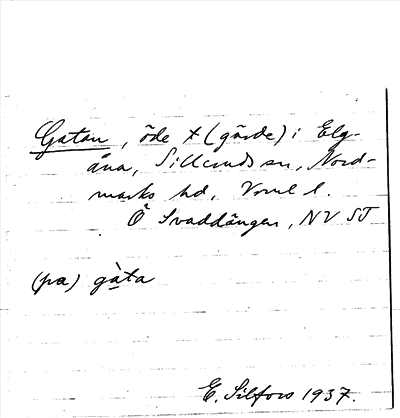 Gatan, öde t (gärde) i Elg-
åna, Sillerud sn, Nord-
marks hd, Vrml l.
Ö Svaddängen, NV ST
(pa) gàta
E. Silfors 1937.